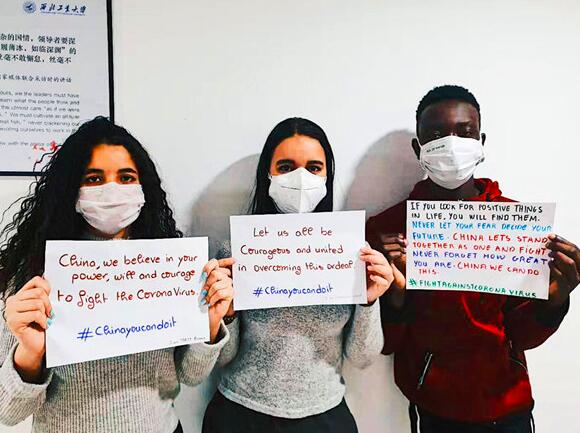 西北工业大学
杂的国情，领导者要深
履薄冰，如临深渊”的
丝毫不敢懈怠，丝毫不
家媒体联合采访时的讲话
ours, we the leaders must have
learn what the people think and
the utmost care, "as if we were
We must cultivate an
fish, " never slackening our
ourselves to work in
with the press
China, we believe in your
power, will and courage
to fight the CoronaVirus.
#Chinayoucandoit
Let us all be
Courageous and united
in overcoming this ordeal.
#Chinayoucandoit
IF YOU LOOK FOR POSITIVE THINGS
IN LIFE, YOU WILL FIND THEM.
NEVER LET YOUR FEAR DECIDE YOUR
FUTURE. CHINA LETS STAND
TOGETHER AS ONE AND FIGHT
NEVER FORGET HOW GREAT
YOU ARE. CHINA WE CAN DO
THIS.
#FIGHTAGAINSTCORONA VIRUS